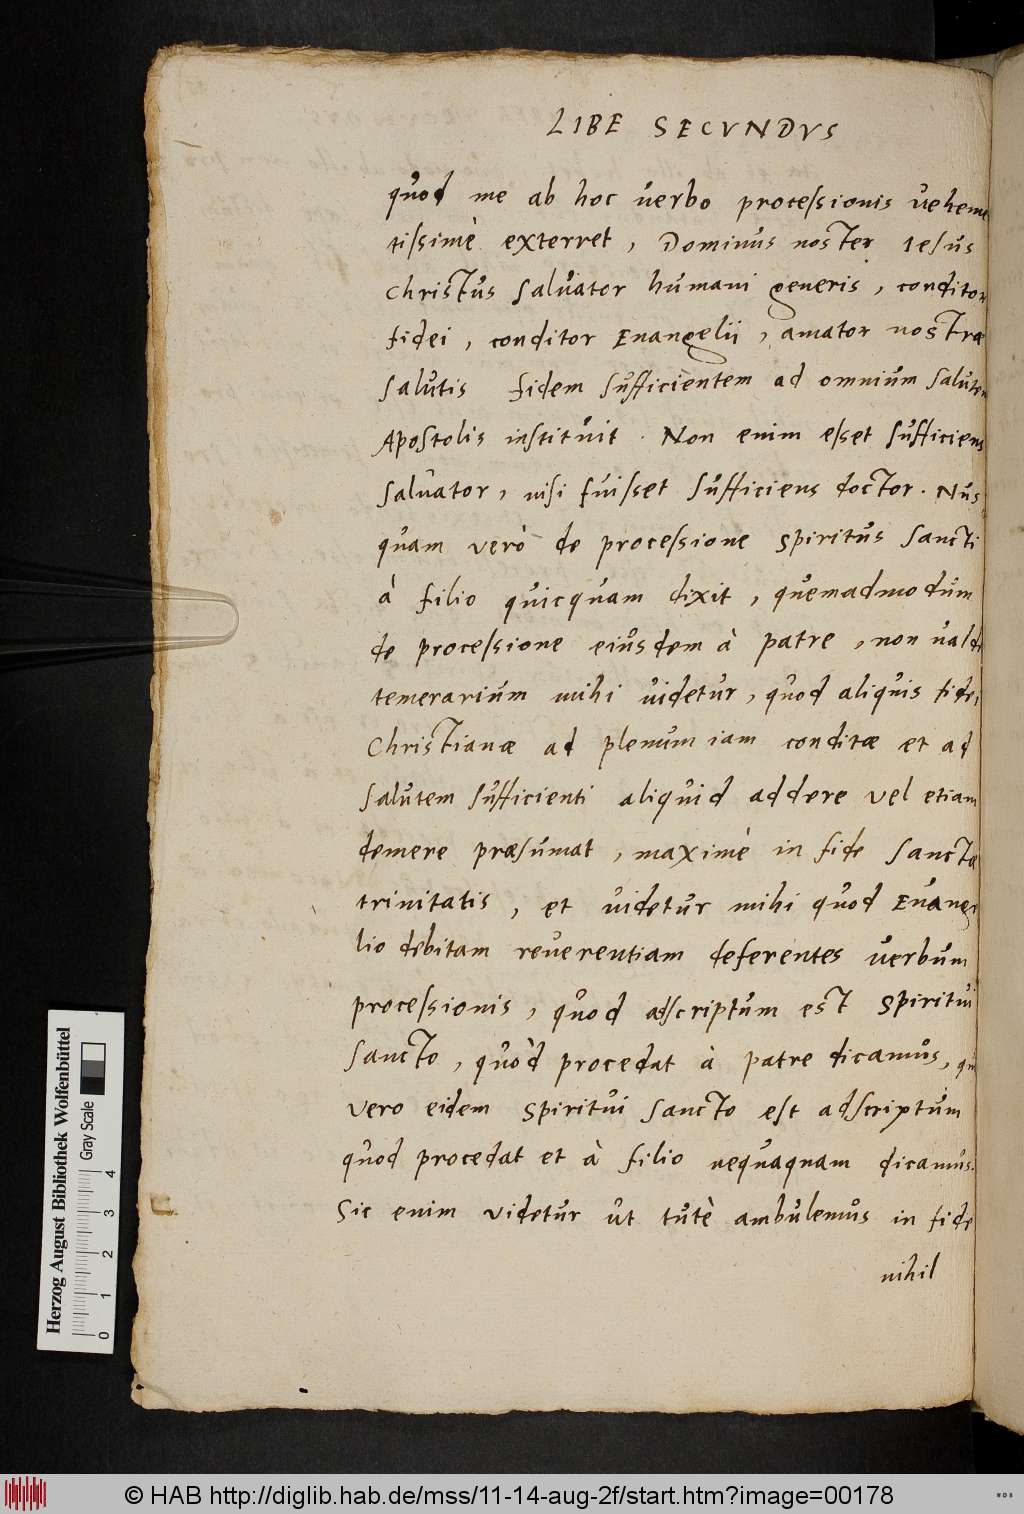 LIBE SECVNDVS
quod me ab hoc verbo processionis veheme
tissimè exterret, Dominus noster Iesus
Christus salvator humani generis, conditor
fidei, conditor Evangelii, amator nostræ
salutis fidem sufficientem ad omnium salutem
Apostolis instituit. Non enim esset sufficiens
salvator, nisi fuisset sufficiens doctor. Nus
quam verò de processione Spiritus sancti
à filio quicquam dixit, quemadmodum
de processione eiusdem à patre, non valde
temerarium mihi videtur, quod aliquis fidei
Christianæ ad plenum iam conditæ et ad
salutem sufficienti aliquid addere vel etiam
demere præsumat, maximè in fide sanctæ
trinitatis, et videtur mihi quod Evange
lio debitam reverentiam deferentes verbum
processionis, quod adscriptum est Spiritui
sancto, quòd procedat à patre dicamus,
vero eidem Spiritui sancto est adscriptum
quod procedat et à filio nequaquam dicamus.
Sic enim videtur ut tutè ambulemus in fide
nihil
Herzog August Bibliothek Wolfenbüttel
Gray Scale
0 1 2 3 4
© HAB http://diglib.hab.de/mss/11-14-aug-2f/start.htm?image=00178